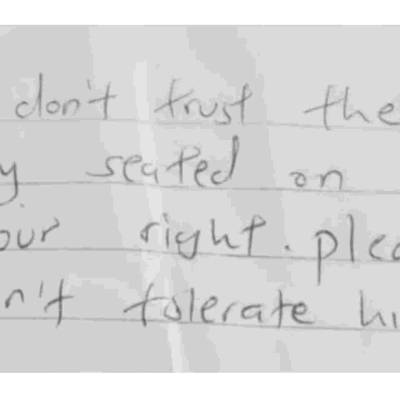 don't trust the
y seated on
our right. plea
n't tolerate hi